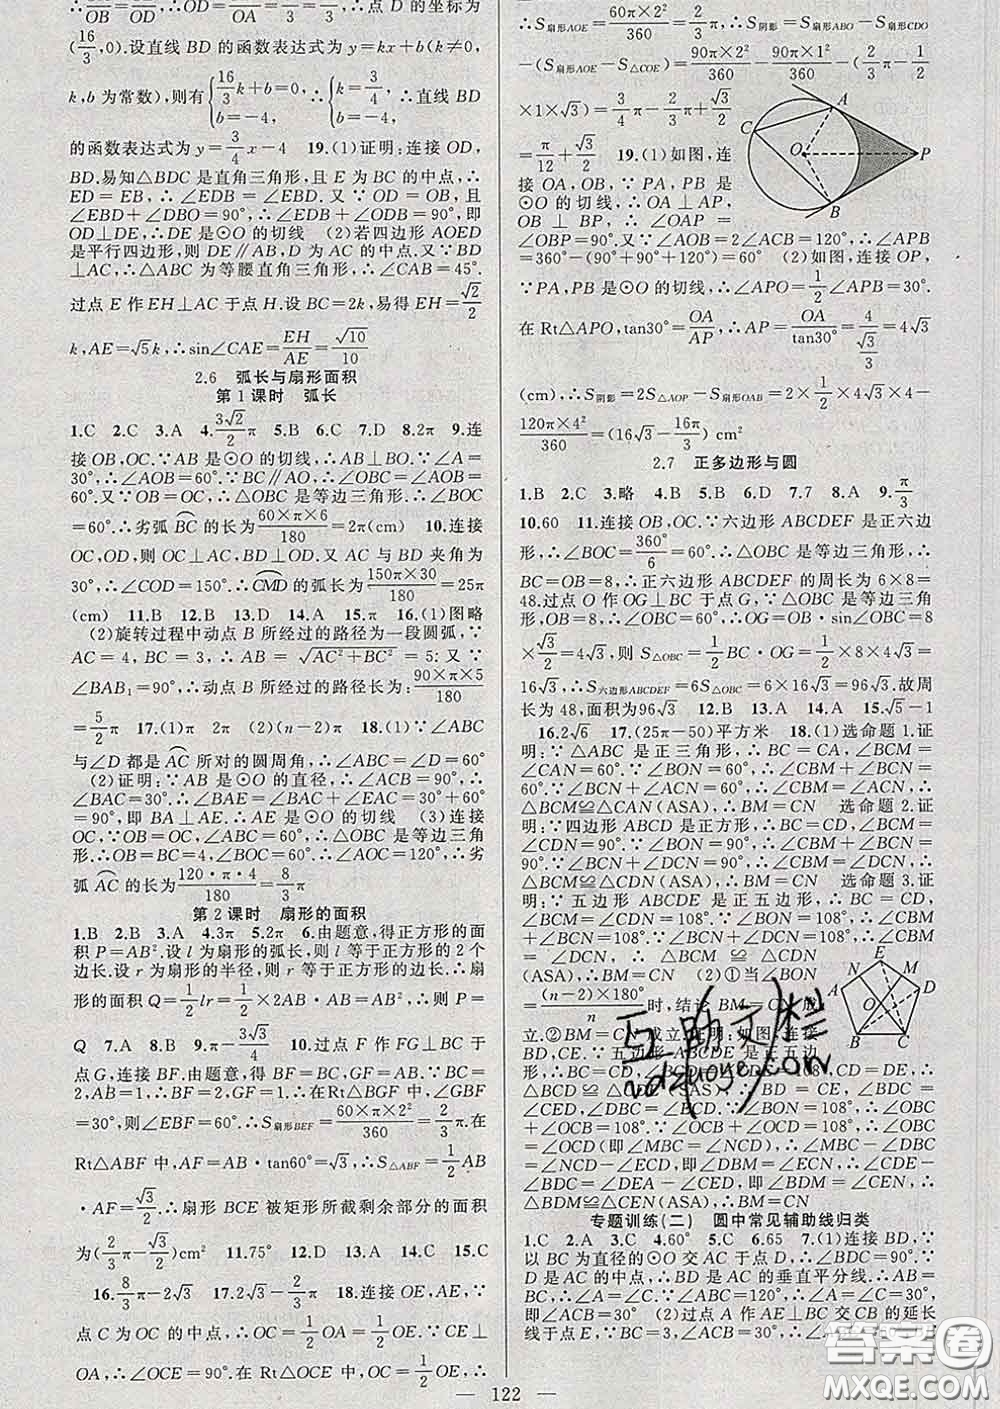 (16/3,0).设直线 BD 的函数表达式为 y=kx+b(k≠0,
k,b 为常数),则有{16/3k+b=0, b=-4, ∴{k=3/4, b=-4, ∴直线 BD
的函数表达式为 y=3/4x-4 19.(1)证明:连接 OD,
BD.易知△BDC 是直角三角形,且 E 为 BC 的中点,∴
ED=EB,∴∠EDB=∠EBD.又∵OD=OB,且
∠EBD+∠DBO=90°,∴∠EDB+∠ODB=90°,即
OD⊥DE,∴DE 是⊙O 的切线 (2)若四边形 AOED
是平行四边形,则 DE∥AB,D 为 AC 的中点.又∵BD
⊥AC,∴△ABC 为等腰直角三角形,∴∠CAB=45°.
过点 E 作 EH⊥AC 于点 H.设 BC=2k,易得 EH=√2/2
k,AE=√5k,∴sin∠CAE=EH/AE=√10/10
2.6 弧长与扇形面积
第 1 课时 弧长
1.C 2.C 3.A 4.3√2/2π 5.B 6.C 7.D 8.2π 9.连
接 OB,OC.∵AB 是⊙O 的切线,∴AB⊥BO.∵∠A=
30°,∴∠AOB=60°.∵BC∥AO,∴∠OBC=∠AOB=
60°.又∵OB=OC,∴△OBC 是等边三角形.∴∠BOC
=60°.∴劣弧 BC 的长为60×π×6/180=2π(cm) 10.连接
OC,OD,则 OC⊥AC,OD⊥BD.又 AC 与 BD 夹角为
30°,∴∠COD=150°.∴CMD 的弧长为150π×30/180=25π
(cm) 11.B 12.B 13.D 14.A 15.π 16.(1)图略
(2)旋转过程中动点 B 所经过的路径为一段圆弧,∵
AC=4,BC=3,∴AB=√AC²+BC²=5;又∵
∠BAB₁=90°,∴动点 B 所经过的路径长为:90×π×5/180
=5/2π 17.(1)π 2π (2)(n-2)π 18.(1)∵∠ABC
与∠D 都是 AC 所对的圆周角,∴∠ABC=∠D=60°
(2)证明:∵AB 是⊙O 的直径,∴∠ACB=90°.∴
∠BAC=30°.∴∠BAE=∠BAC+∠EAC=30°+60°
=90°,即 BA⊥AE.∴AE 是⊙O 的切线 (3)连接
OC,∵OB=OC,∠ABC=60°,∴△OBC 是等边三角
形.∴OB=BC=4,∠BOC=60°.∴∠AOC=120°,∴劣
弧 AC 的长为120·π·4/180=8/3π
第 2 课时 扇形的面积
1.B 2.B 3.A 4.3π 5.2π 6.由题意,得正方形的面
积 P=AB².设 l 为扇形的弧长,则 l 等于正方形的 2 个
边长.设 r 为扇形的半径,则 r 等于正方形的边长.∴扇
形的面积 Q=1/2lr=1/2×2AB×AB=AB².则 P=
Q 7.A 8.B 9.π-3√3/4 10.过点 F 作 FG⊥BC 于
点 G,
2,AB=1,∴BF=BE=2,FG=1.在 Rt△BGF 中,∠GBF
=30°,则∠EBF=60°.∴S扇形BEF=60×π×2²/360=2/3π.在
Rt△ABF 中,AF=AB·tan60°=√3,∴S△ABF=1/2AB
·AF=√3/2.∴扇形 BCE 被矩形所截剩余部分的面积
为(2/3π-√3/2)cm² 11.75° 12.A 13.C 14.A 15.C
16.8/3π-2√3 17.2√3-2/3π 18.连接 OE,AE,∵
点 C 为 OA 的中点,∴OC=1/2OA=1/2OE.∵CE⊥
OA,∴∠OCE=90°.在 Rt△OCE 中,OC=1/2OE,∴
∴S扇形AOE=60π×2²/360=2/3π,∴S阴影=S扇形ABO-S扇形CDO
-(S扇形AOE-S△COE)=90π×2²/360-90π×1²/360-(2/3π-1/2
×1×√3)=3/4π-2/3π+√3/2
=π/12+√3/2 19.(1)如图,连
接 OA,OB,∵PA,PB 是
⊙O 的切线,∴OA⊥AP,
OB⊥BP,∴∠OAP=
∠OBP=90°.又∵∠AOB=2∠ACB=120°,∴∠APB
=360°-(90°+90°+120°)=60° (2)如图,连接 OP,
∵PA,PB 是⊙O 的切线,∴∠APO=1/2∠APB=30°.
在 Rt△APO,tan30°=OA/AP,∴AP=OA/tan30°=4/(√3/3)=4√3
(cm),∴S阴影=2S△AOP-S扇形OAB=2×1/2×4√3×4-
120π×4²/360=(16√3-16π/3) cm²
2.7 正多边形与圆
1.B 2.C 3.略 4.B 5.B 6.D 7.7 8.A 9.π/3
10.60 11.连接 OB,OC.∵六边形 ABCDEF 是正六边
形,∴∠BOC=360°/6=60°,∴△OBC 是等边三角形,∴
BC=OB=8,∴正六边形 ABCDEF 的周长为 6×8=
48.过点 O 作 OG⊥BC 于点 G,∵△OBC 是等边三角
形,OB=8,∴∠OBC=60°,∴OG=OB·sin∠OBC=8
×√3/2=4√3,则 S△OBC=1/2BC·OG=1/2×8×4√3=
16√3,∴S六边形ABCDEF=6S△OBC=6×16√3=96√3.故周
长为 48,面积为96√3 12.B 13.A 14.A 15.√5-1
16.2√6 17.(25π-50)平方米 18.(1)选命题 1.证
明:∵△ABC 是正三角形,∴BC=CA,∠BCM=
∠CAN=60°.∵∠BON=60°,∴∠CBM+∠BCN=
60°.∵∠BCN+∠ACN=60°,∴∠CBM=∠ACN,∴
△BCM≌△CAN(ASA),∴BM=CN 选命题 2.证
明:∵四边形 ABCD 是正方形,∴BC=CD,∠BCM=
∠CDN=90°.∵∠BON=90°,∴∠CBM+∠BCN=
90°.∵∠BCN+∠DCN=90°,∴∠CBM=∠DCN,∴
△BCM≌△CDN(ASA),∴BM=CN 选命题 3.证
明:∵五边形 ABCDE 是正五边形,∴BC=CD,∠BCM
=∠CDN=108°.∵∠BON=108°,∴∠CBM+
∠BCN=108°.∵∠BCN+∠DCN=108°,∴
∠CBM=∠DCN,∴△BCM≌△CDN
(ASA),∴BM=CN (2)①当∠BON
=(n-2)×180°/n时,结论 BM=CN 成
立.②BM=CN 成立.证明:如图,连接
BD,CE.∵五边形 ABCDE 是正五边
∴△BCD≌△CDE(SAS),∴BD=CE,∠BDC=
∠CED,∠DBC=∠ECD.∵∠BON=108°,∴∠OBC
+∠OCB=108°.∵∠OCB+∠OCD=108°,∴∠OBC
=∠OCD(即∠MBC=∠NCD),∴∠MBC-∠DBC
=∠NCD-∠ECD,即∠DBM=∠ECN,∴∠CDE-
∠BDC=∠DEA-∠CED,即∠BDM=∠CEN,∴
△BDM≌△CEN(ASA),∴BM=CN
专题训练(二) 圆中常见辅助线归类
1.C 2.A 3.C 4.C 5.C 6.65 7.(1)连接 BD,∵
以 BC 为直径的⊙O 交 AC 于点 D,∴∠BDC=90°.∵
D 是 AC 的中点,∴BD 是 AC 的垂直平分线.∴AB=
BC.∴∠A=∠C.∵∠ABC=120°,∴∠A=∠C=30°,
即∠ACB=30° (2)过点 A 作 AE⊥BC 交 CB 的延长
线于点 E,∵BC=3,∠ACB=30°,∠BDC=90°,∴
— 122 —
A
C
O
P
B
E
N
M
A
D
O
B
C
互助文档
hdzuoye.com
答案圈
MXQE.COM